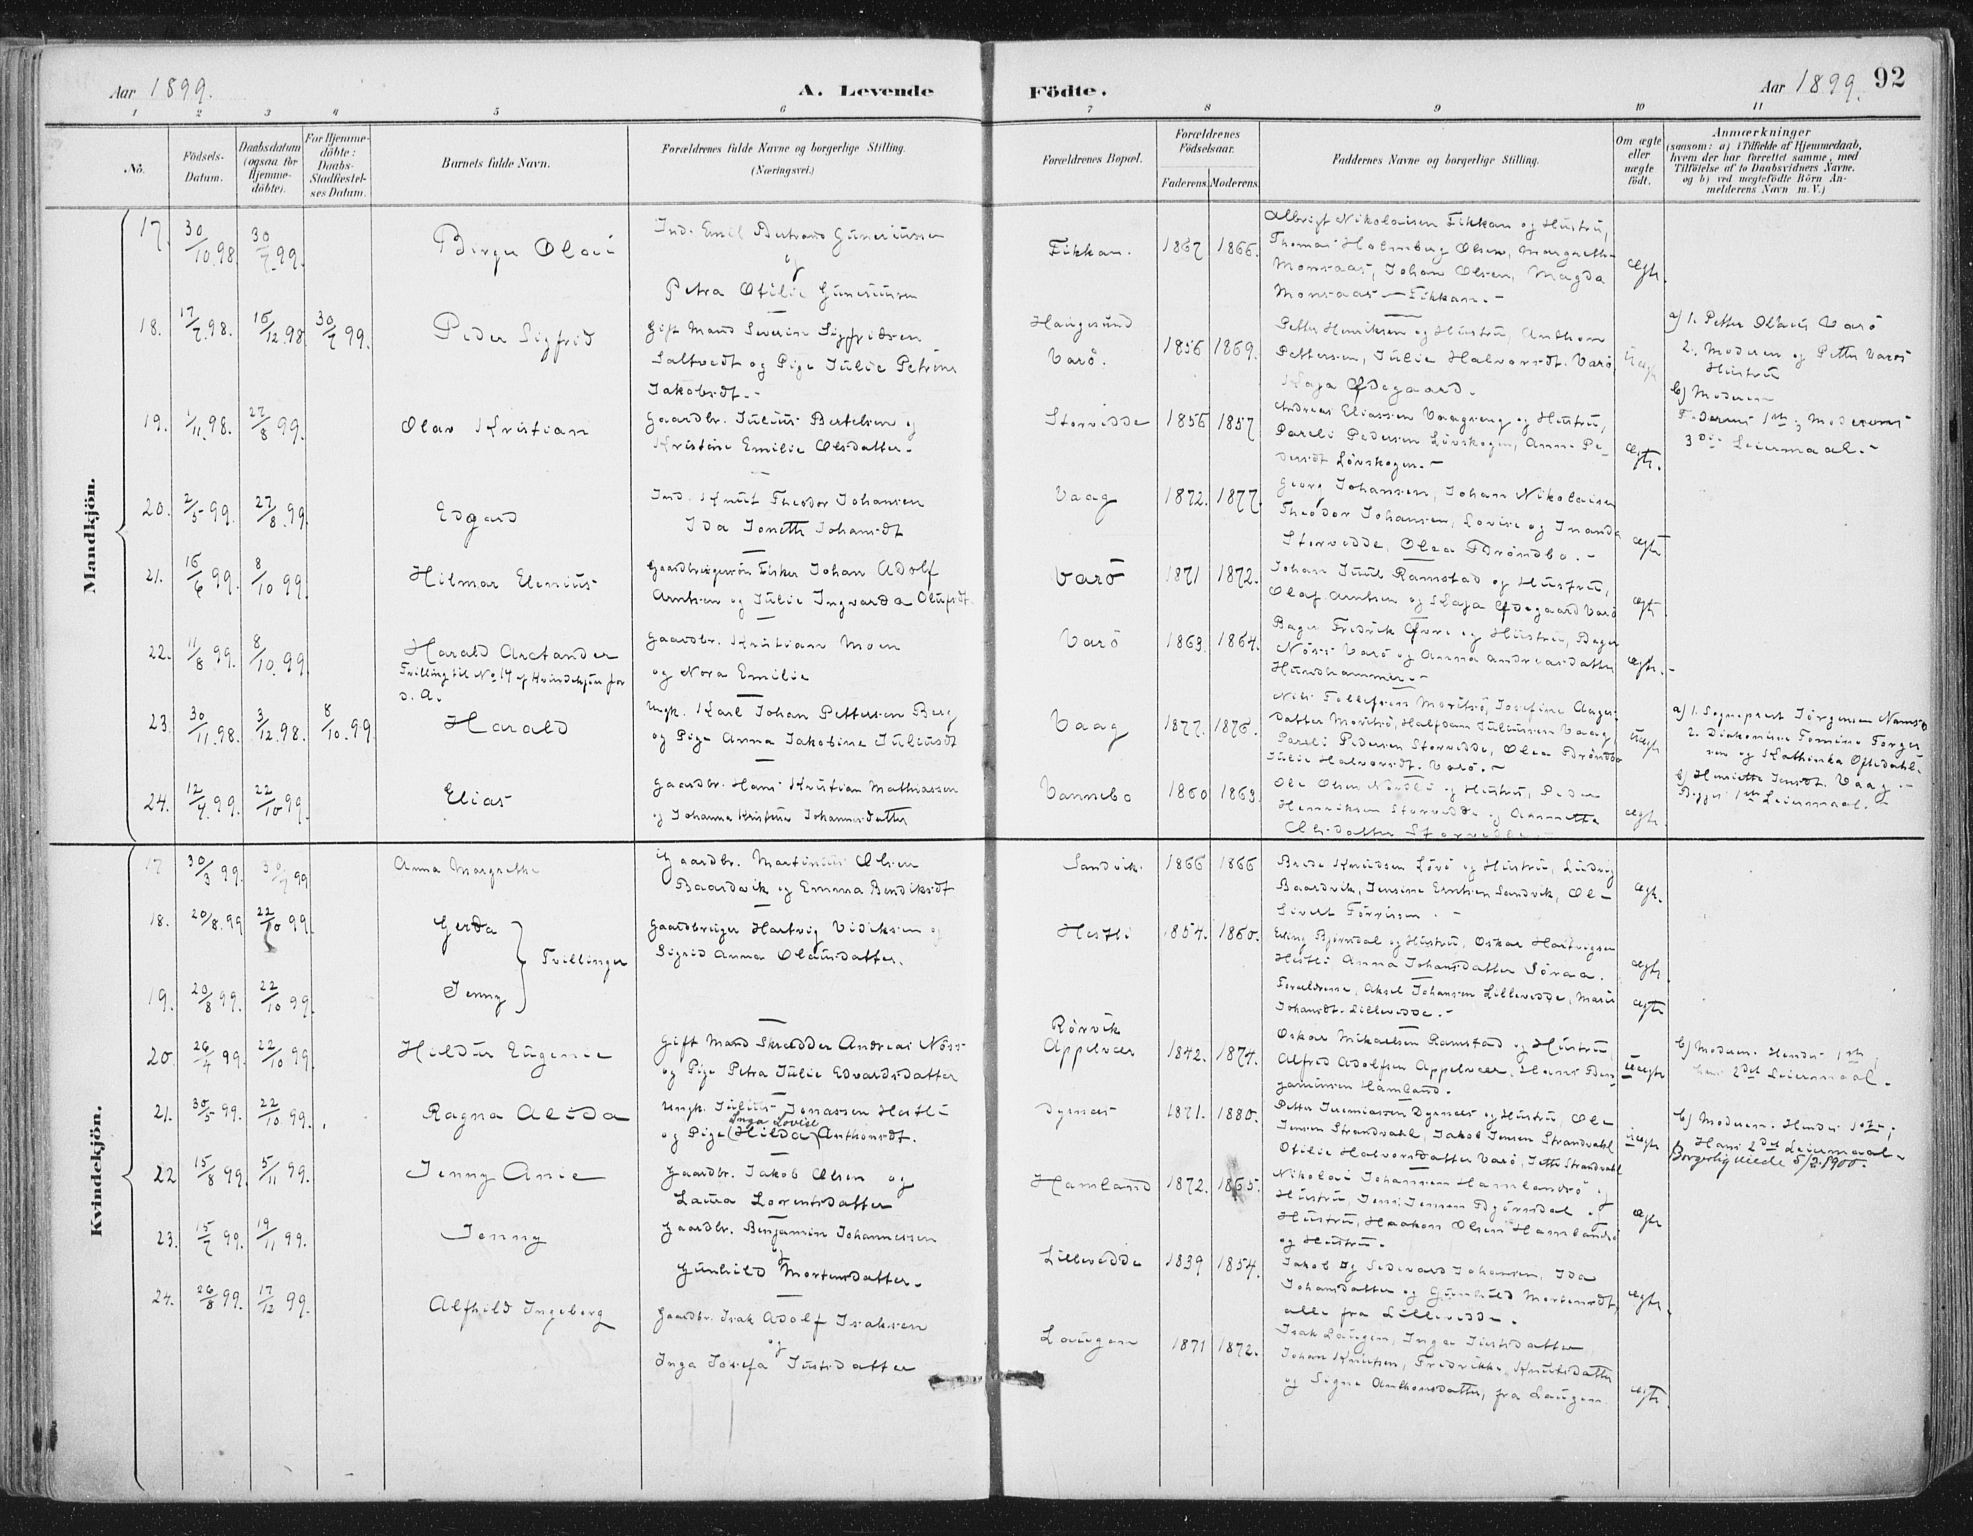 Aar 1899.
A. Levende
Födte.
Aar 1899.
92
1 2 3 4 5 6 7 8 9 10 11
No.
Födsels-Datum.
Daabsdatum (ogsaa for Hjemme-döbte).
For Hjemme-döbte: Daabs-Stadfæstel-ses Datum.
Barnets fulde Navn.
Forældrenes fulde Navne og borgerlige Stilling. (Næringsvei.)
Forældrenes Bopæl.
Forældrenes Födselsaar.
Faderens. Moderens.
Faddernes Navne og borgerlige Stilling.
Om ægte eller uægte født.
Anmærkninger
(saasom: a) i Tilfælde af Hjemmedaab, hvem der har forrettet samme, med Tilföielse af to Daabsvidners Navne. og b) ved uægtefödte Börn An-melderens Navn m. V.)
Mandkjön.
17. 30/10.98 30/7.99. Birger Olai
Ind. Emil Bertrand Guneriussen
og
Petra Otilie Guneriussen
Fikkan. 1867 1866.
Albrigt Nikolaisen Fikkan og Hustru,
Thomas Holmberg Olsen, Margrethe
Monsaas, Johan Olsen, Magda
Monsaas - Fikkan. -
ægte.
18. 17/7.98. 16/12.98 30/7 99. Peder Sigfrid
Gift Mand Severin Sigfridsen
Saltvedt og Pige Julie Petrine
Jakobsdt. -
Haugesund
Varö. 1856 1869.
Petter Henriksen og Hustru, Anthon
Pettersen, Julie Halvorsdt. Varö,
Kaja Ødegaard.
uægte
a) 1. Petter Olaus Varö
2. Moderen og Petter Varös
Hustru
b) Moderen
Faderens 1ste, Moderens
3die Leiermaal. -
19. 1/11.98. 27/8 99. Olav Kristian
Gaardbr. Julius Bertelsen og
Kristine Emilie Olsdatter.
Storvedde 1856 1857
Andreas Eliassen Vaagseng og Hustru,
Pareli Pedersen Lövskogen, Anne Pe-
dersdt Lövskogen. -
ægte.
20. 2/5 99. 27/8.99. Edgard
Ind. Knut Theodor Johansen
Ida Jonette Johansdt
Vaag 1872. 1877.
Georg Johansen, Johan Nikolaisen
Theodor Johansen, Lovise og Inanda
Storvedde, Olea Bröndbo. -
ægte
21. 16/6 99. 8/10 99. Hilmar Elenius
Gaardbrugersön Fisker Johan Adolf
Arntsen og Julie Ingvarda Olufsdt.
Varö 1871 1872.
Johan Juul Ramstad og Hustru,
Olaf Arntsen og Kaja Ødegaard Varö
ægte.
22. 11/8 99. 8/10.99 Harald Arctander
Tvilling til No 14 af Kvindekjön for
d. A.
Gaardbr. Kristian Moen
og Nora Emilie
Varö 1863. 1864.
Bager Fredrik Øvre og Hustru, Bager
Nöss Varö og Anna Andreasdatter
Hundhammer. -
ægte. -
23. 30/11.98. 3/12.98. 8/10.99. Harald
Ungk. Karl Johan Pettersen Berg
og Pige Anna Jakobine Juliusdt
Vaag 1877. 1876.
Nils Tollefsen Moritsö, Josefine Aages-
datter Moritsö, Halfdan Juliussen Vaag,
Pareli Pedersen Storvedde, Olea Bröndbo
Julie Halvorsdt. Varö. -
uægte
a) 1. Sogneprest Jörgensen Namsos
2. Diakonisse Tomine Torger-
sen og Kathinka Oftedahl.
b) Henriette Jensdt. Vaag. -
Begges 1ste Leiermaal. -
24. 12/4.99. 22/10 99. Elias
Gaardbr. Hans Kristian Mathiassen
og Johanna Kristine Johannesdatter
Vannebo 1860 1863.
Ole Olsen Nordli og Hustru, Peder
Henriksen Storvedde og Annette
Olsdatter Storvedde.
ægte.
Kvindekjön.
17 30/3 99. 30/7 99 Anna Margrethe
Gaardbr. Martinus Olsen
Baardvik og Emma Bendiksdt
Sandvik. 1866 1866
Brede Knudsen Lövö og Hustru, Ludvig
Baardvik, Jensine Erntsen Sandvik, Ole
Sivert Torrissen. -
ægte.
18. 20/8.99 22/10 99. Gerda
Tvillinger
Gaardbruger Hartvig Vidiksen og
Sigrid Anna Olausdatter.
Hestli 1854. 1860.
Eling Bjørndal og Hustru, Oskar Hartvigsen
Hestli Anna Johansdatter Söraa.
ægte
19. 20/8 99. 22/10 99. Jenny
Forældrene, Aksel Johansen Lillevedde, Marie
Johansdt. Lillevedde. -
ægte
20. 26/4 99. 22/10 99. Hildur Eugenie
Gift Mand Skrædder Andreas Nöss
og Pige Petra Julie Edvardsdatter
Rörvik
Appelvær 1842. 1874.
Oskar Mikaelsen Ramstad og Hustru,
Alfred Adolfsen Appelvær, Hans Ben-
jaminsen Hamland.
uægte
b) Moderen. Hendes 1ste,
hans 2det Leiermaal -
21. 30/5 99. 22/10 99. Ragna Alida
Ungk. Julius Jonassen Hestli
Inga Lovise
og Pige (Hilda) Anthonsdt.
Dyrnes 1871. 1880.
Petter Jeremiassen Dyrnes og Hustru, Ole
Jensen Strandvahl, Jakob Jensen Strandvahl
Otilie Halvorsdatter Varö, Jette Strandvahl
uægte
b) Moderen. Hendes 1ste;
Hans 2det Leiermaal -
Borgerlig viede 5/2.1900.
22 15/8 99. 5/11 99. Jenny Anie
Gaardbr. Jakob Olsen og
Laura Lorentsdatter
Hamland 1872. 1865.
Nikolai Johansen Hamlandsö og
Hustru, Jens Jensen Bjørndal og
Hustru, Haakon Olsen Hamlandsö
og Hustru.
ægte
23. 15/7 99. 19/11 99. Jenny
Gaardbr. Benjamin Johannessen
og
Gunhild Mortensdatter.
Lillevedde 1839 1854.
Jakob og Sedevard Johansen, Ida
Johansdatter og Gunhild Mortensdt,
alle fra Lillevedde.
ægte.
24. 26/8 99. 17/12 99. Alfhild Ingeborg
Gaardbr. Isak Adolf Isaksen
og
Inga Josefa Justsdatter
Laugen 1871 1872.
Isak Laugen, Inga Justsdatter,
Johan Knutsen, Fredrikke Knutsdatter
og Signe Anthonsdatter, fra Laugen
ægte